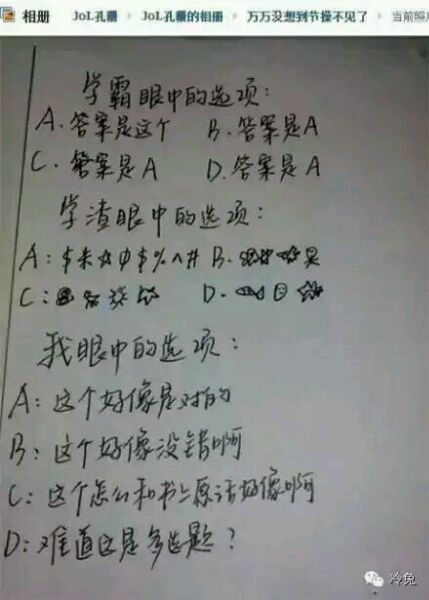 相册 JoL孔疆 > JoL孔疆的相册 > 万万没想到节操不见了 > 当前照
学霸眼中的选项:
A.答案是这个 B.答案是A
C.答案是A D.答案是A
学渣眼中的选项:
A:$ * ☆ φ $ % ^ # B.
C: D.
我眼中的选项:
A:这个好像是对的
B:这个好像没错啊
C:这个怎么和书上原话好像啊
D:难道这是多选题?
冷兔